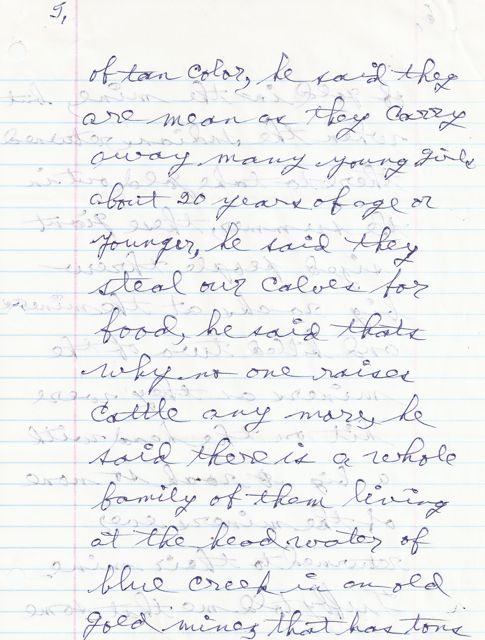 5,
of tan color, he said they
are mean as they carry
away many young girls
about 20 years of age or
younger, he said they
steal our calves for
food, he said thats
why no one raises
cattle any more, he
said there is a whole
family of them living
at the head water of
blue creek in an old
gold mine, that has tons